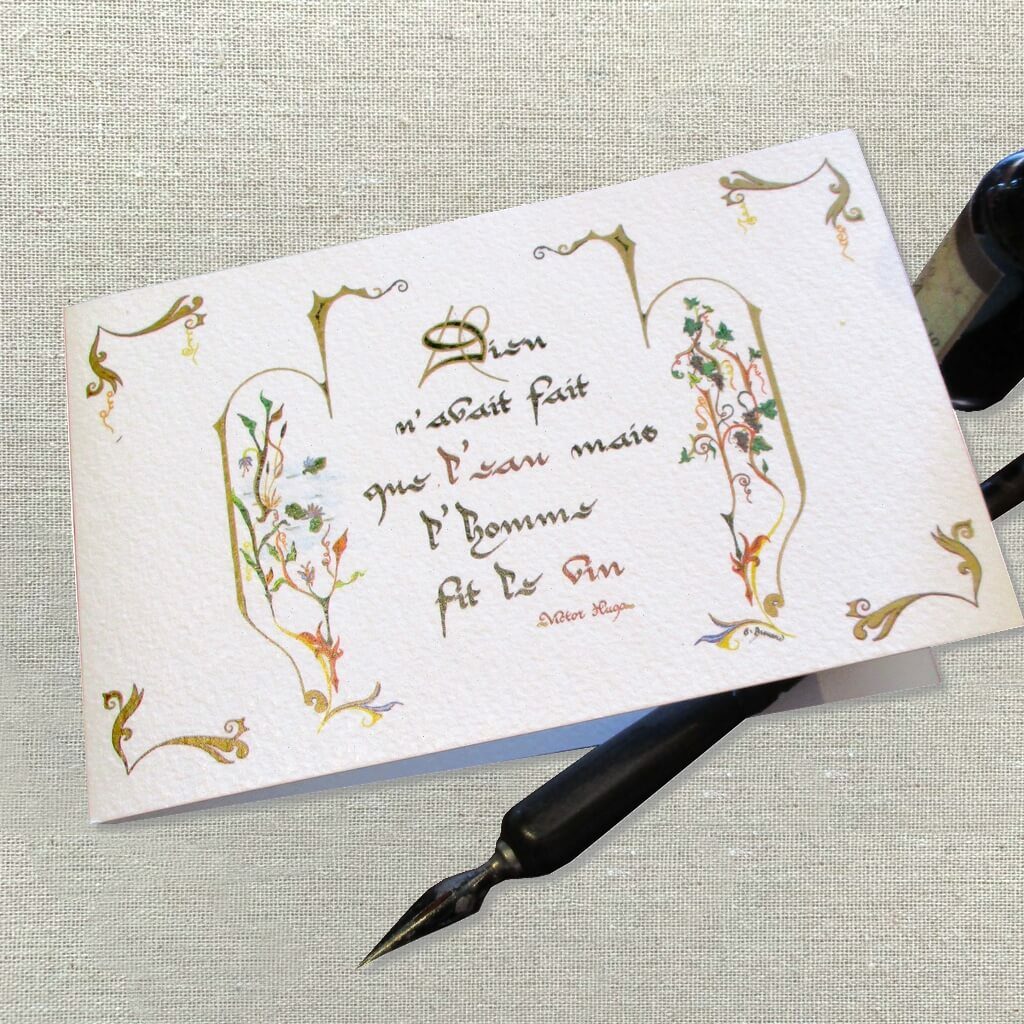 Dieu
n'avait fait
que l'eau mais
l'homme
fit le vin
Victor Hugo